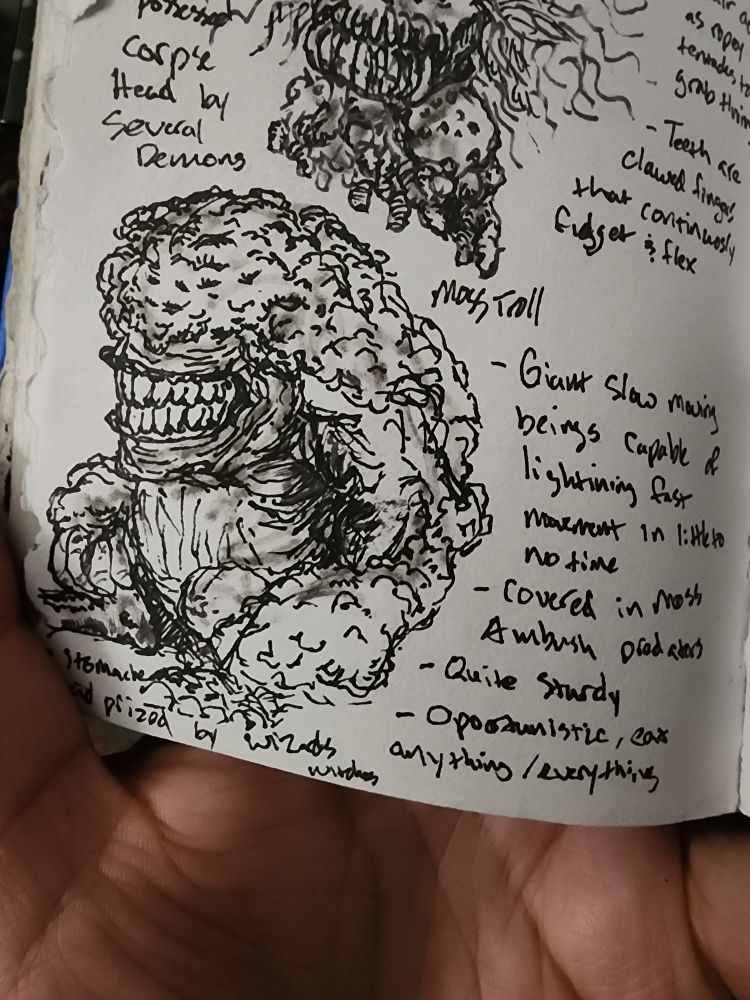 possessed
corpse
Head by
Several
Demons
as ropey
tentacles to
grab
- Teeth are
clawed fingers
that continuously
fidget & flex
Moss Troll
- Giant slow moving
beings capable of
lightining fast
movement in little to
no time
- Covered in moss
Ambush predators
- Quite sturdy
- Opportunistic, eat
anything / everything
stomache
prized by wizards
witches